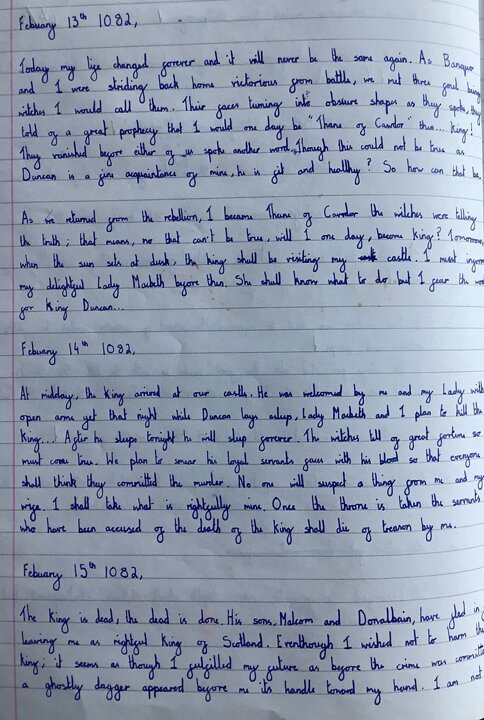 Febuary 13th 1082,
Today my life changed forever and it will never be the same again. As Banquo
and I were striding back home victorious from battle, we met three foul beings
witches I would call them. Their faces turning into obscure shapes as they spoke, they
told of a great prophecy that I would one day be "Thane of Cawdor" then... King!
They vanished before either of us spoke another word. Though this could not be true as
Duncan is a fine acquaintance of mine, he is fit and healthy? So how can that be.
As we returned from the rebellion, I became Thane of Cawdor the witches were telling
the truth; that means, no that can't be true, will I one day, become King? Tomorrow,
when the sun sets at dusk, the king shall be visiting my castle. I must inform
my delightful Lady Macbeth before then. She shall know what to do but I fear the
for King Duncan...
Febuary 14th 1082.
At midday, the King arrived at our castle. He was welcomed by me and my Lady with
open arms yet that night while Duncan lays asleep, Lady Macbeth and I plan to kill the
King... After he sleeps tonight he will sleep forever. The witches tell of great fortune so
must come true. We plan to smear his loyal servants faces with his blood so that everyone
shall think they committed the murder. No one will suspect a thing from me and my
wife. I shall take what is rightfully mine. Once the throne is taken the servants
who have been accused of the death of the King shall die of treason by me.
Febuary 15th 1082,
The King is dead, the dead is done. His sons, Malcom and Donalbain, have fled in
leaving me as rightful King of Scotland. Eventhough I wished not to harm the
king; it seems as though I fulfilled my future as before the crime was committed
a ghostly dagger appeared before me its handle toward my hand. I am not